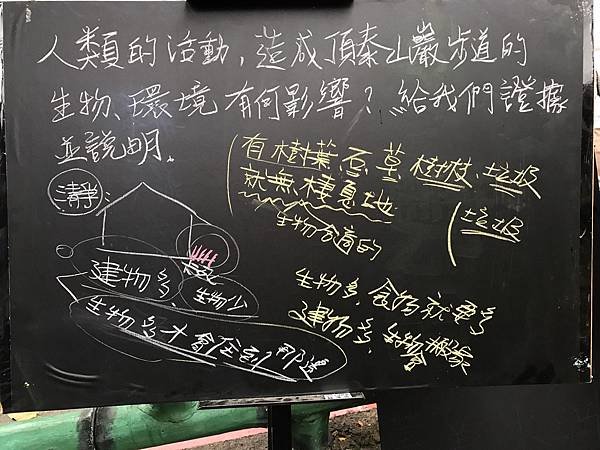 人類的活動,造成頂泰山巖步道的
生物、環境有何影響?給我們證據
並說明。
有樹葉、石、草、樹枝、垃圾
就無棲息地
生物合適的
垃圾
清靜
建物多
生物少
生物多才會住到那邊
生物多,食物就要多
建物多,生物會搬家